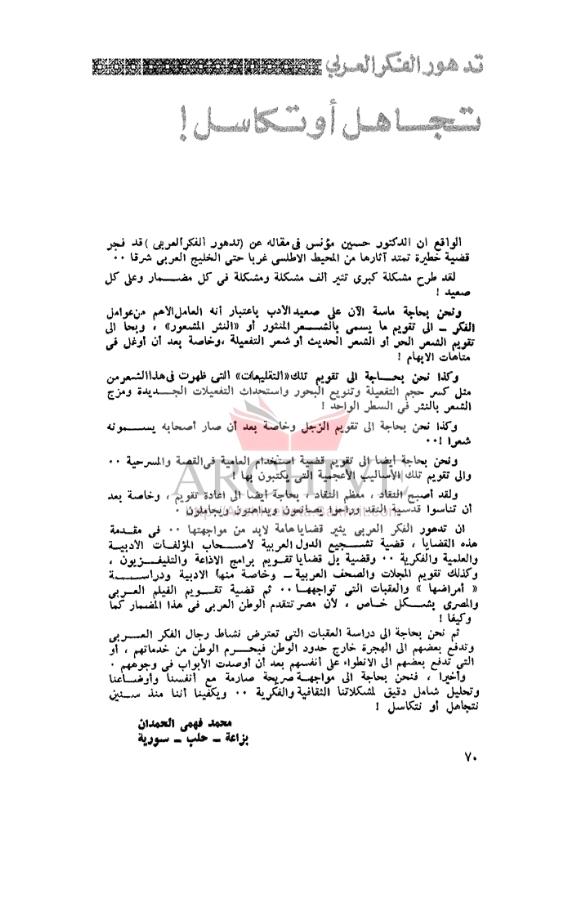 تدهور الفكر العربي
تجاهل أو تكاسل !
الواقع ان الدكتور حسين مؤنس فى مقاله عن (تدهور الفكر العربى) قد فجر
قضية خطيرة تمتد آثارها من المحيط الاطلسى غربا حتى الخليج العربى شرقا ٠٠
لقد طرح مشكلة كبرى تثير ألف مشكلة ومشكلة فى كل مضمار وعلى كل
صعيد !
ونحن بحاجة ماسة الآن على صعيد الأدب باعتبار أنه العامل الاهم من عوامل
الفكر ـ الى تقويم ما يسمى بالشعر المنثور أو «النثر المشعور» ، وبحا الى
تقويم الشعر الحر أو الشعر الحديث أو شعر التفعيلة ،وخاصة بعد أن أوغل فى
متاهات الابهام !
وكذا نحن بحاجة الى تقويم تلك «التقليعات» التى ظهرت فى هذا الشعر من
مثل كسر حجم التفعيلة وتنويع البحور واستحداث التفعيلات الجديدة ومزج
الشعر بالنثر فى السطر الواحد !
وكذا نحن بحاجة الى تقويم الزجل وخاصة بعد أن صار أصحابه يسمونه
شعرا !٠٠
ونحن بحاجة أيضا الى تقويم قضية استخدام العامية فى القصة والمسرحية ٠٠
والى تقويم تلك الأساليب الأعجمية التى يكتبون بها !
ولقد أصبح النقاد ، معظم النقاد ، بحاجة أيضا الى اعادة تقويم ، وخاصة بعد
أن تناسوا قدسية النقد وراحوا يصانعون ويداهنون ويجاملون ٠
ان تدهور الفكر العربى يثير قضايا هامة لابد من مواجهتها ٠٠ فى مقدمة
هذه القضايا ، قضية تشجيع الدول العربية لأصحاب المؤلفات الادبية
والعلمية والفكرية ٠٠ وقضية بل قضايا تقويم برامج الاذاعة والتليفزيون ،
وكذلك تقويم المجلات والصحف العربية ـ وخاصة منها الادبية ودراسة
« أمراضها » والعقبات التى تواجهها ٠٠ ثم قضية تقويم الفيلم العربى
والمصرى بشكل خاص ، لأن مصر تتقدم الوطن العربى فى هذا المضمار كما
وكيفا !
ثم نحن بحاجة الى دراسة العقبات التى تعترض نشاط رجال الفكر العربى
وتدفع بعضهم الى الهجرة خارج حدود الوطن فيحرم الوطن من خدماتهم ، أو
التى تدفع بعضهم الى الانطواء على أنفسهم بعد أن أوصدت الأبواب فى وجوههم ٠
وأخيرا ، فنحن بحاجة الى مواجهة صريحة صارمة مع أنفسنا وأوضاعنا
وتحليل شامل دقيق لمشكلاتنا الثقافية والفكرية ٠٠ ويكفينا أننا منذ سنين
نتجاهل أو نتكاسل !
محمد فهمى الحمدان
بزاعة ـ حلب ـ سورية
٧٠
ARCHIVE